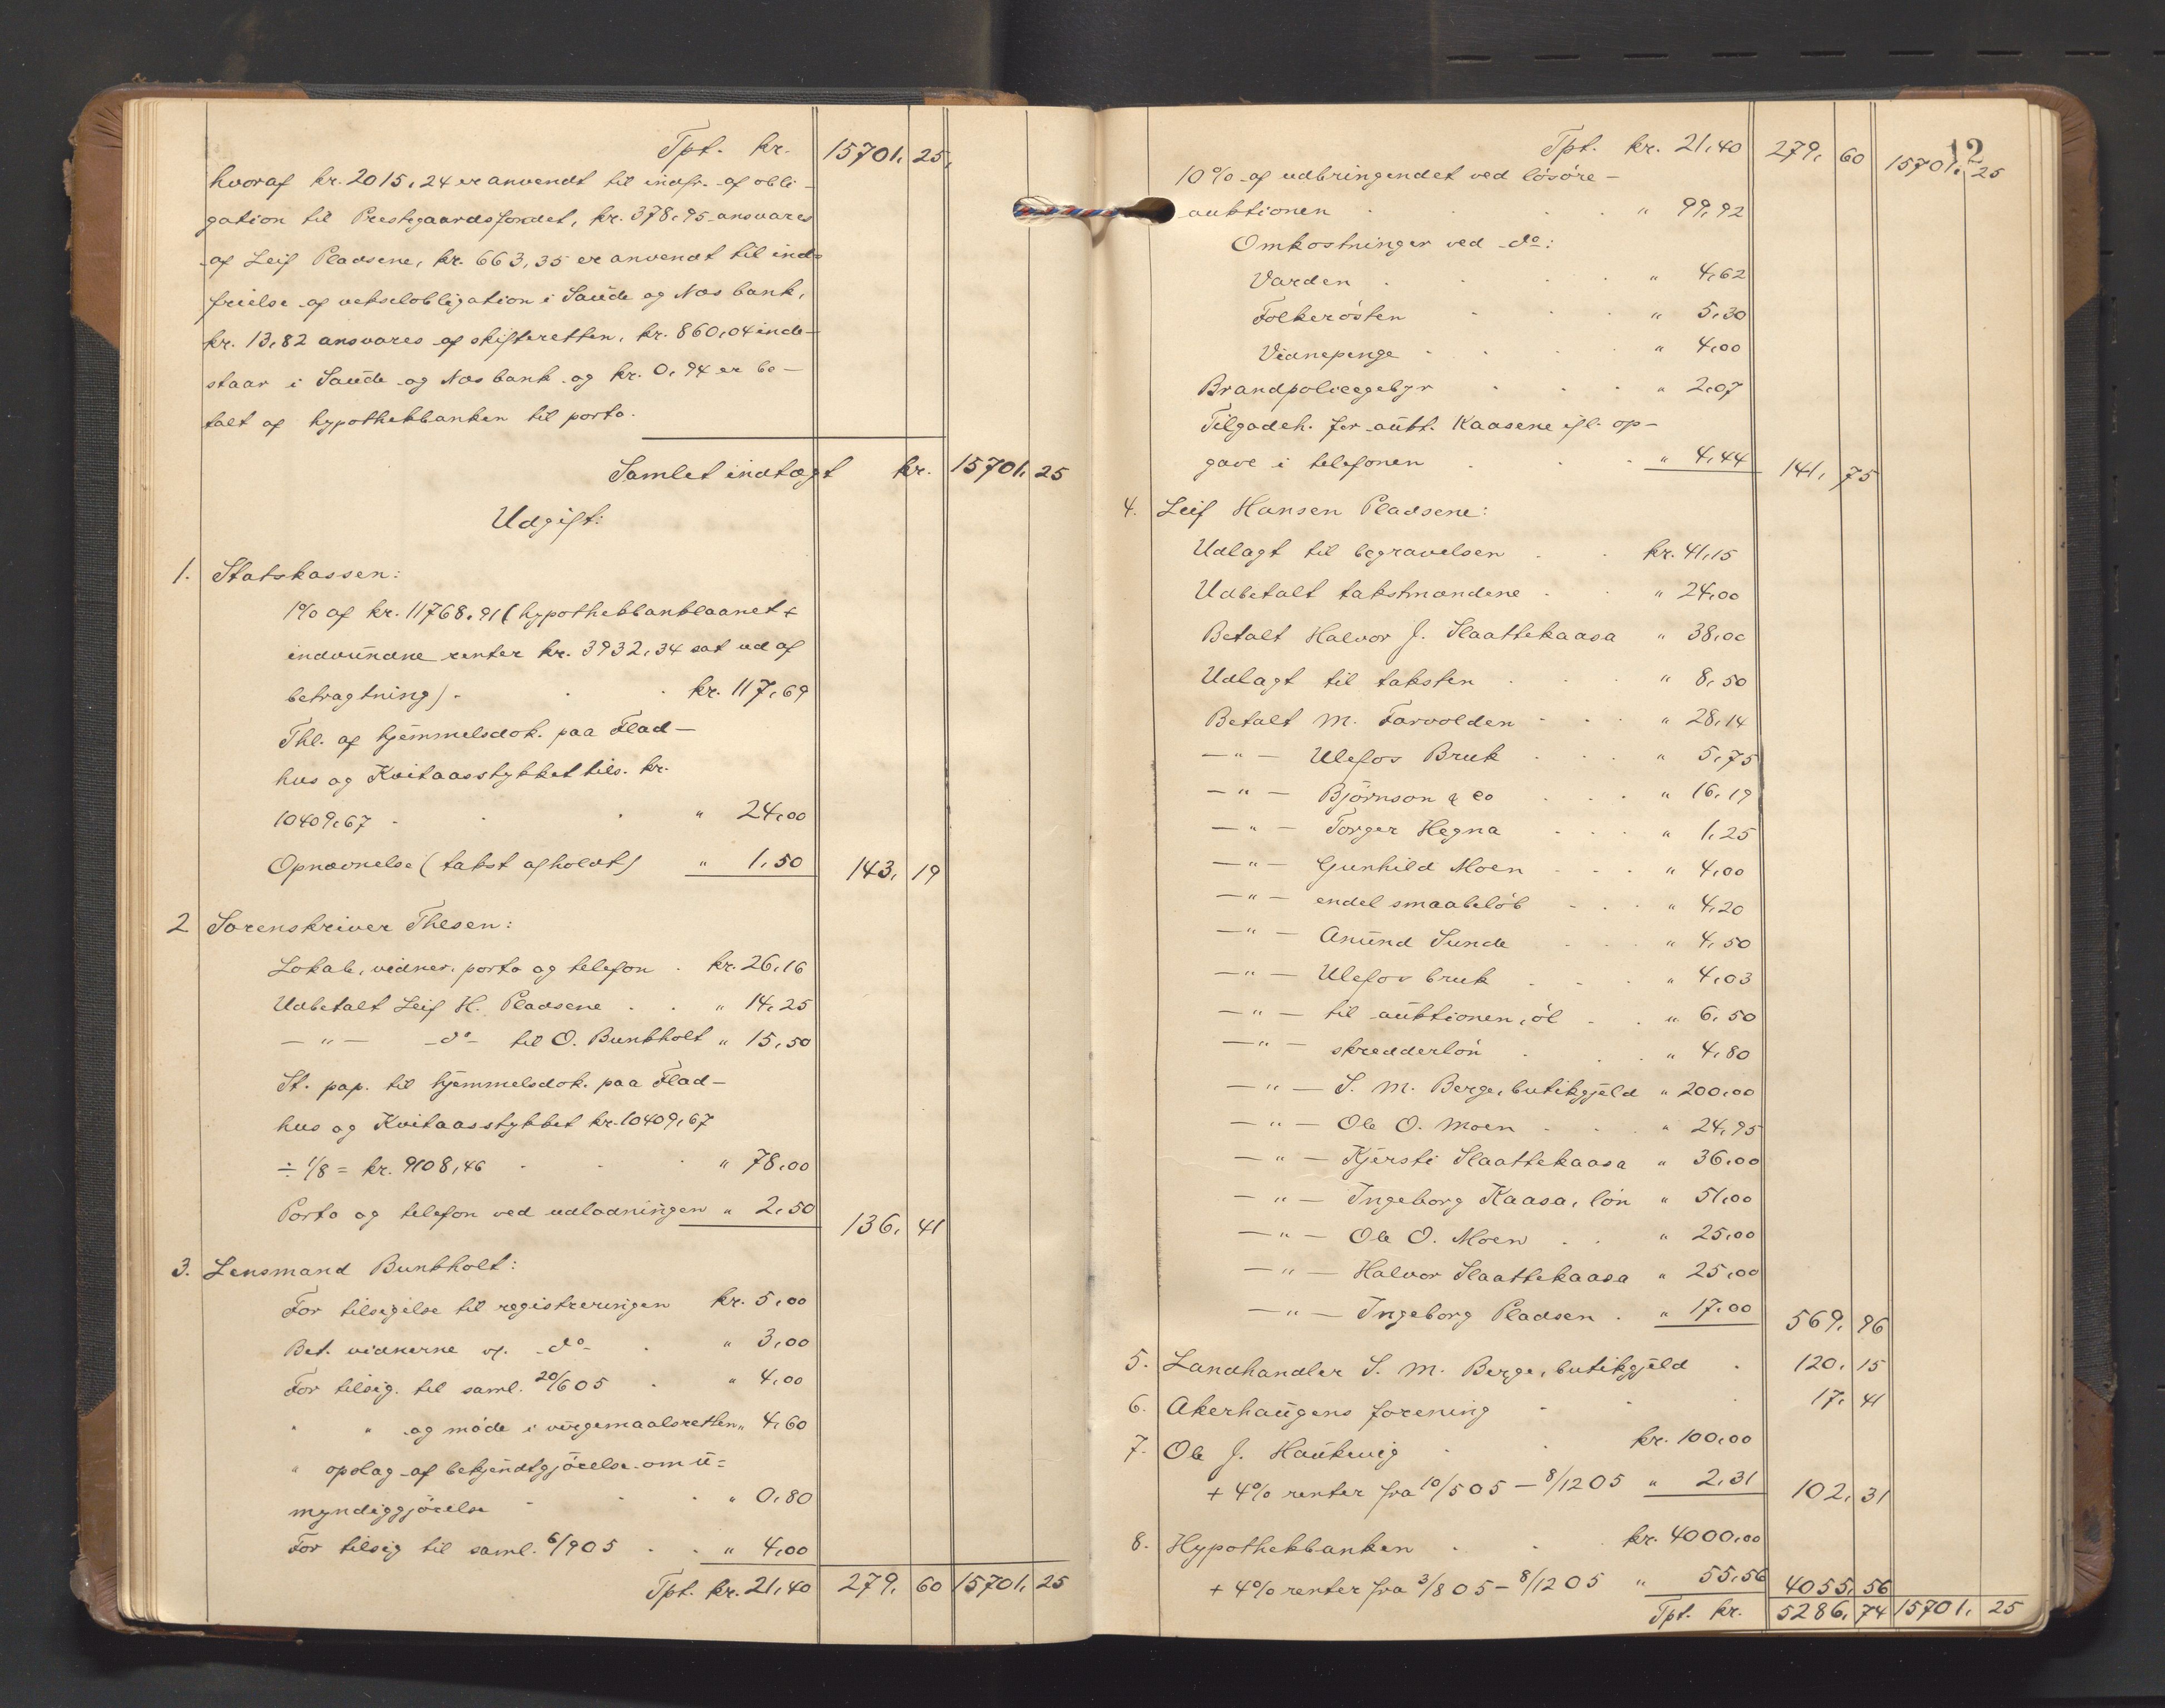 Tpt. kr. 15701, 25,
hvoraf kr. 2015,24 er anvendt til indfr. af obli-
gation til Prestegaardsfondet, kr. 378,95 ansvares
af Leif Pladsene, kr. 663,35 er anvendt til ind=
frielse af vekselobligation i Saude og Nes bank,
kr. 13,82 ansvares af skifteretten, kr. 860,04 inde-
staar i Saude og Nes bank og kr. 0,94 er be-
talt af hypothekbanken til porto.
Samlet indtægt kr. 15701, 25
Udgift:
1. Statskassen:
1% af kr. 11768,91 (hypothekbanklaanet +
indvundne renter kr. 3932,34 sat ud af
betragtning). kr. 117,69
Thl. af hjemmelsdok. paa Flad-
hus og Kvitaasstykket tils. kr.
10409,67 " 24,00
Opnævnelse (takst afholdt) " 1,50 143, 19
2 Sorenskriver Thesen:
Lokale, vidner, porto og telefon kr. 26,16
Udbetalt Leif H. Pladsene " 14,25
— " — do til O. Bunkholt " 15,50
St. pap. til hjemmelsdok. paa Flad-
hus og Kvitaasstykket kr. 10409,67
÷ 1/8 = kr. 9108,46 " 78,00
Porto og telefon ved udlodningen " 2,50 136, 41
3. Lensmand Bunkholt:
For tilsigelse til registreringen kr. 5,00
Bet. vidnerne v. do " 3,00
For tilsig. til saml. 20/6 05 " 4,00
" " og møde i vergemaalsretten " 4,60
" opslag af bekjendtgjörelse om u=
myndiggjörelse " 0,80
For tilsig til saml. 6/9 05 " 4,00
Tpt. kr. 21,40 279, 60 15701, 25
12
Tpt. kr. 21,40 279, 60 15701, 25
10% af udbringendet ved lösöre-
auktionen " 99,92
Omkostninger ved do:
Varden " 4,62
Folkerösten " 5,30
Vidnepenge " 4,00
Brandpolicegebyr " 2,07
Tilgodeh. for aukt. Kaasene ifl. op-
gave i telefonen " 4,44 141, 75
4. Leif Hansen Pladsene:
Udlagt til begravelsen kr. 41,15
Udbetalt takstmændene " 24,00
Betalt Halvor J. Slaattekaasa " 38,00
Udlagt til taksten " 8,50
Betalt M. Farvolden " 28,14
— " — Ulefos Bruk " 5,75
— " — Björnson & co " 16,19
— " — Torger Hegna " 1,25
— " — Gunhild Moen " 4,00
— " — endel smaabelöb " 4,20
— " — Anund Sunde " 4,50
— " — Ulefos bruk " 4,03
— " — til auktionen, öl " 6,50
— " — skredderlön " 4,80
— " — S. M. Berge, butikgjeld " 200,00
— " — Ole O. Moen " 24,95
— " — Kjersti Slaattekaasa " 36,00
— " — Ingeborg Kaasa, lön " 51,00
— " — Ole O. Moen " 25,00
— " — Halvor Slaattekaasa " 25,00
— " — Ingeborg Pladsen " 17,00 569, 96
5. Landhandler S. M. Berge, butikgjeld 120, 15
6. Akerhaugens forening 17, 41
7. Ole J. Haukvig kr. 100,00
+ 4% renter fra 10/5 05 — 8/12 05 " 2,31 102, 31
8. Hypothekbanken kr. 4000,00
+ 4% renter fra 3/8 05 — 8/12 05 " 55,56 4055, 56
Tpt. kr. 5286, 74 15701, 25